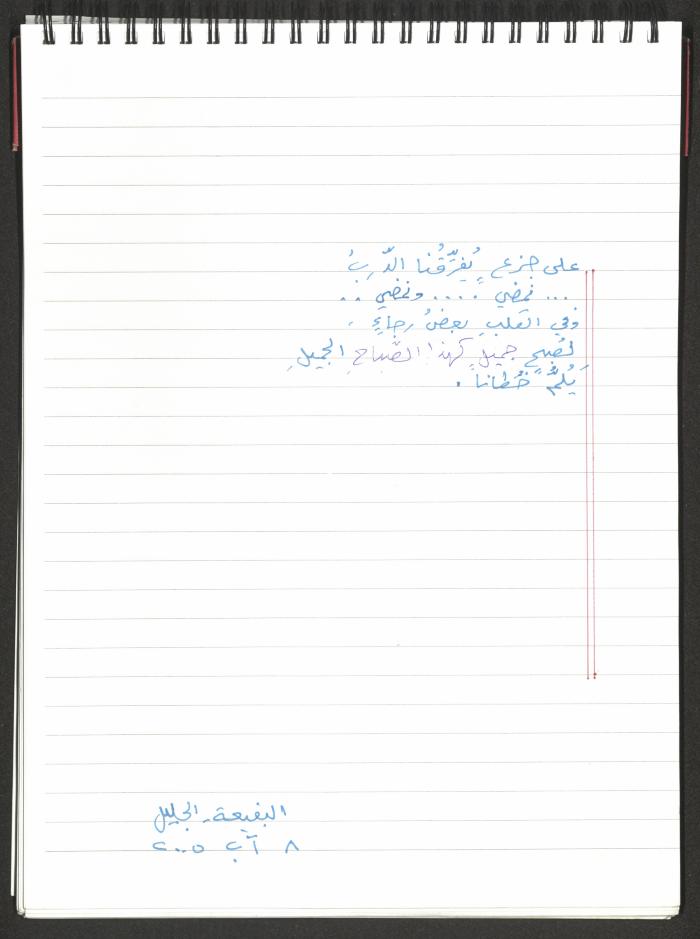 على جزعٍ يُفرِّقُنا الدّربُ
... نمضي .... ونمضي ..
وفي القلبِ بعضُ رجاءٍ ،
لصُبحٍ جميلٍ كهذا الصّباحِ الجميلِ
يَلُمُّ خُطانا .
البقيعة - الجليل
٨ آب ٢٠٠٥